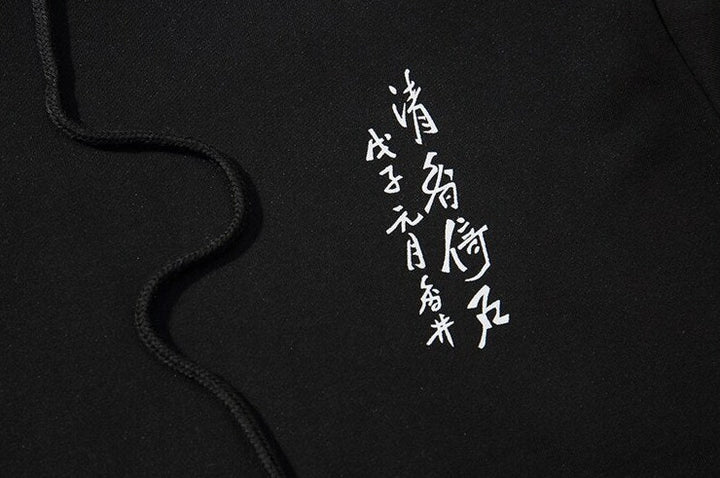 清香倚石
戊子元月